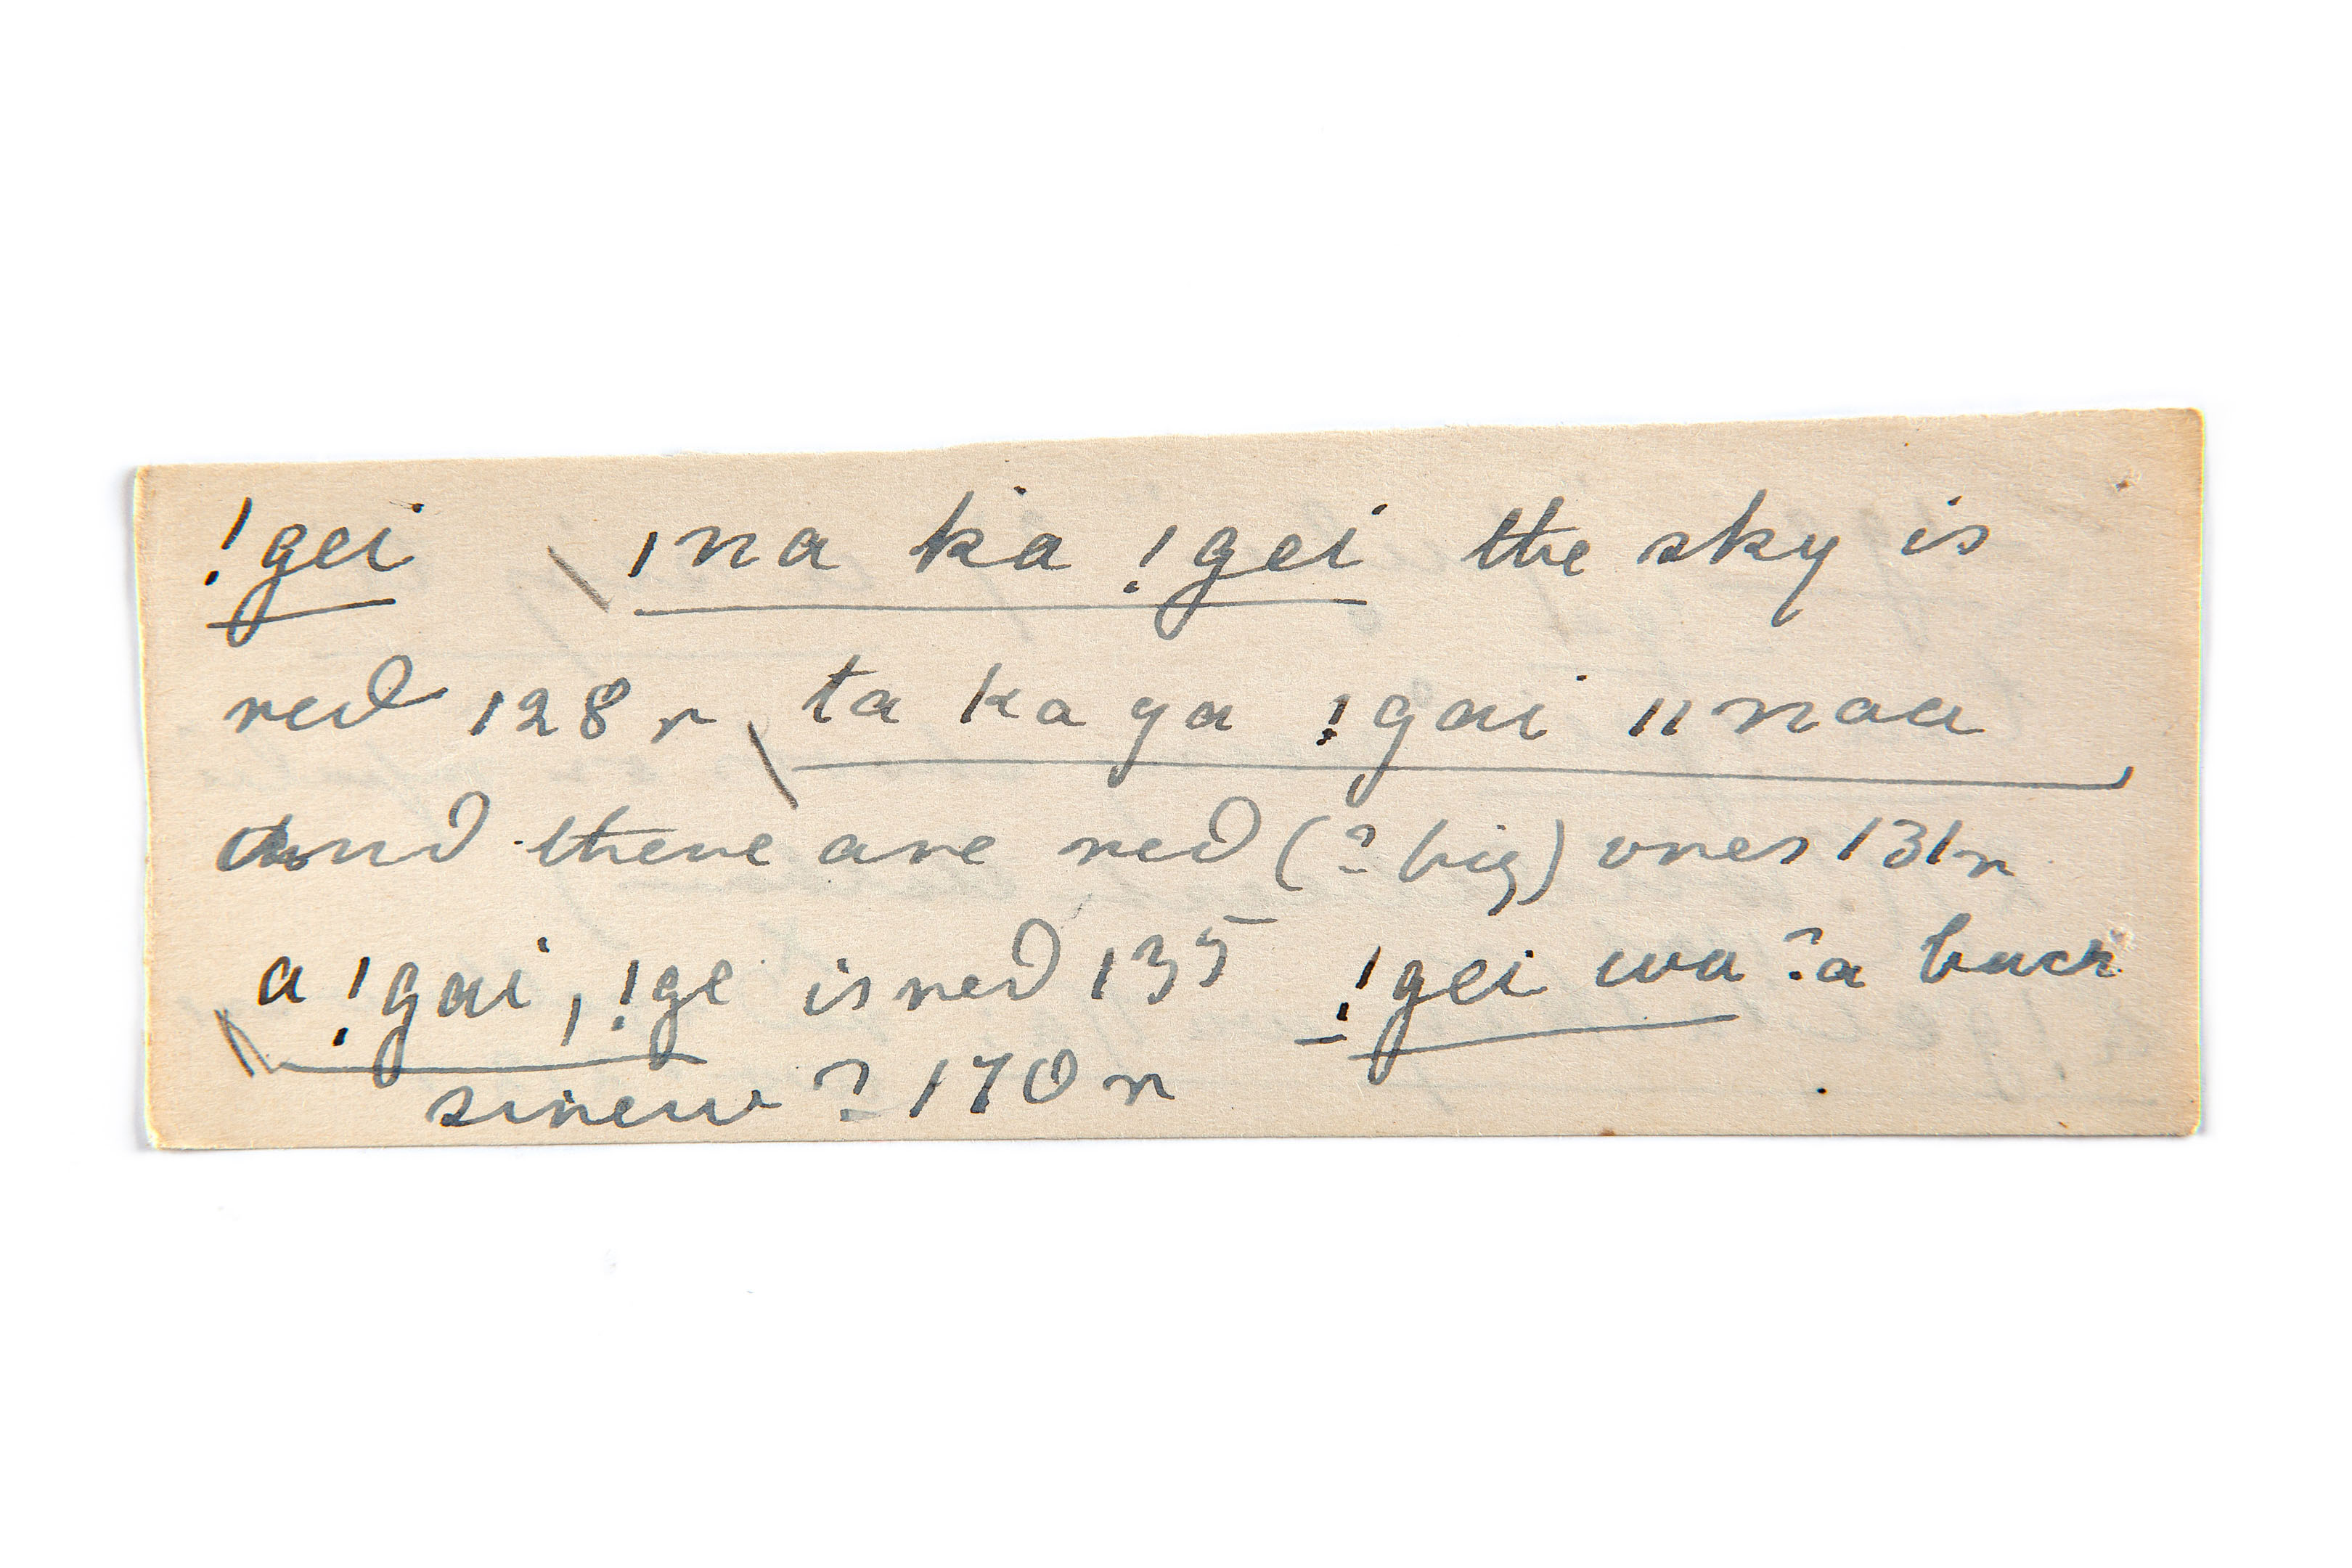 !gei \ ǀna ka !gei the sky is
red 128 r \ ta ka ga !gai ǁnaa
And there are red (? big) ones 131 r
\ a !gai, !ge is red 135 !gei wa ? a back
sinew ? 170 r